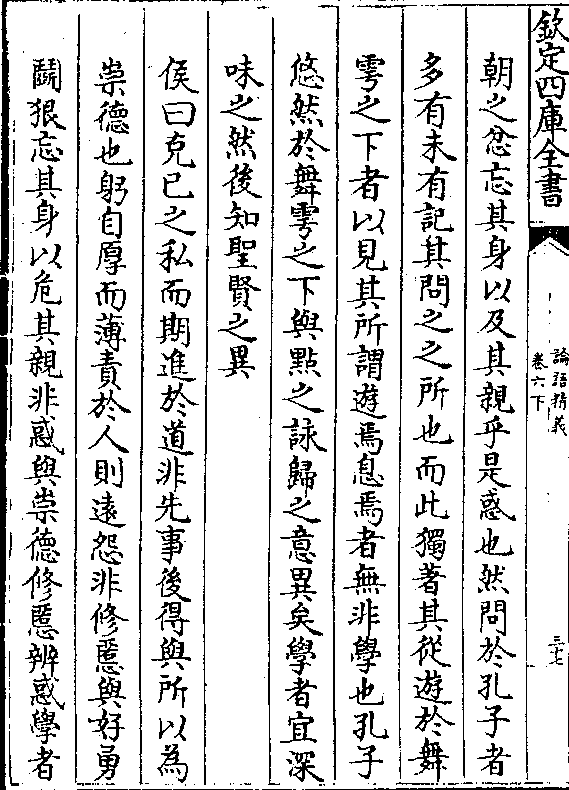 欽定四庫全書
論語精義
卷六下
三十七
朝之忿忘其身以及其親乎是惑也然問於孔子者
多有未有記其問之之所也而此獨著其從遊於舞
雩之下者以見其所謂遊焉息焉者無非學也孔子
悠然於舞雩之下與點之詠歸之意異矣學者宜深
味之然後知聖賢之異
侯曰克已之私而期進於道非先事後得與所以為
崇德也躬自厚而薄責於人則遠怨非修慝與好勇
鬭狠忘其身以危其親非惑與崇德修慝辨惑學者